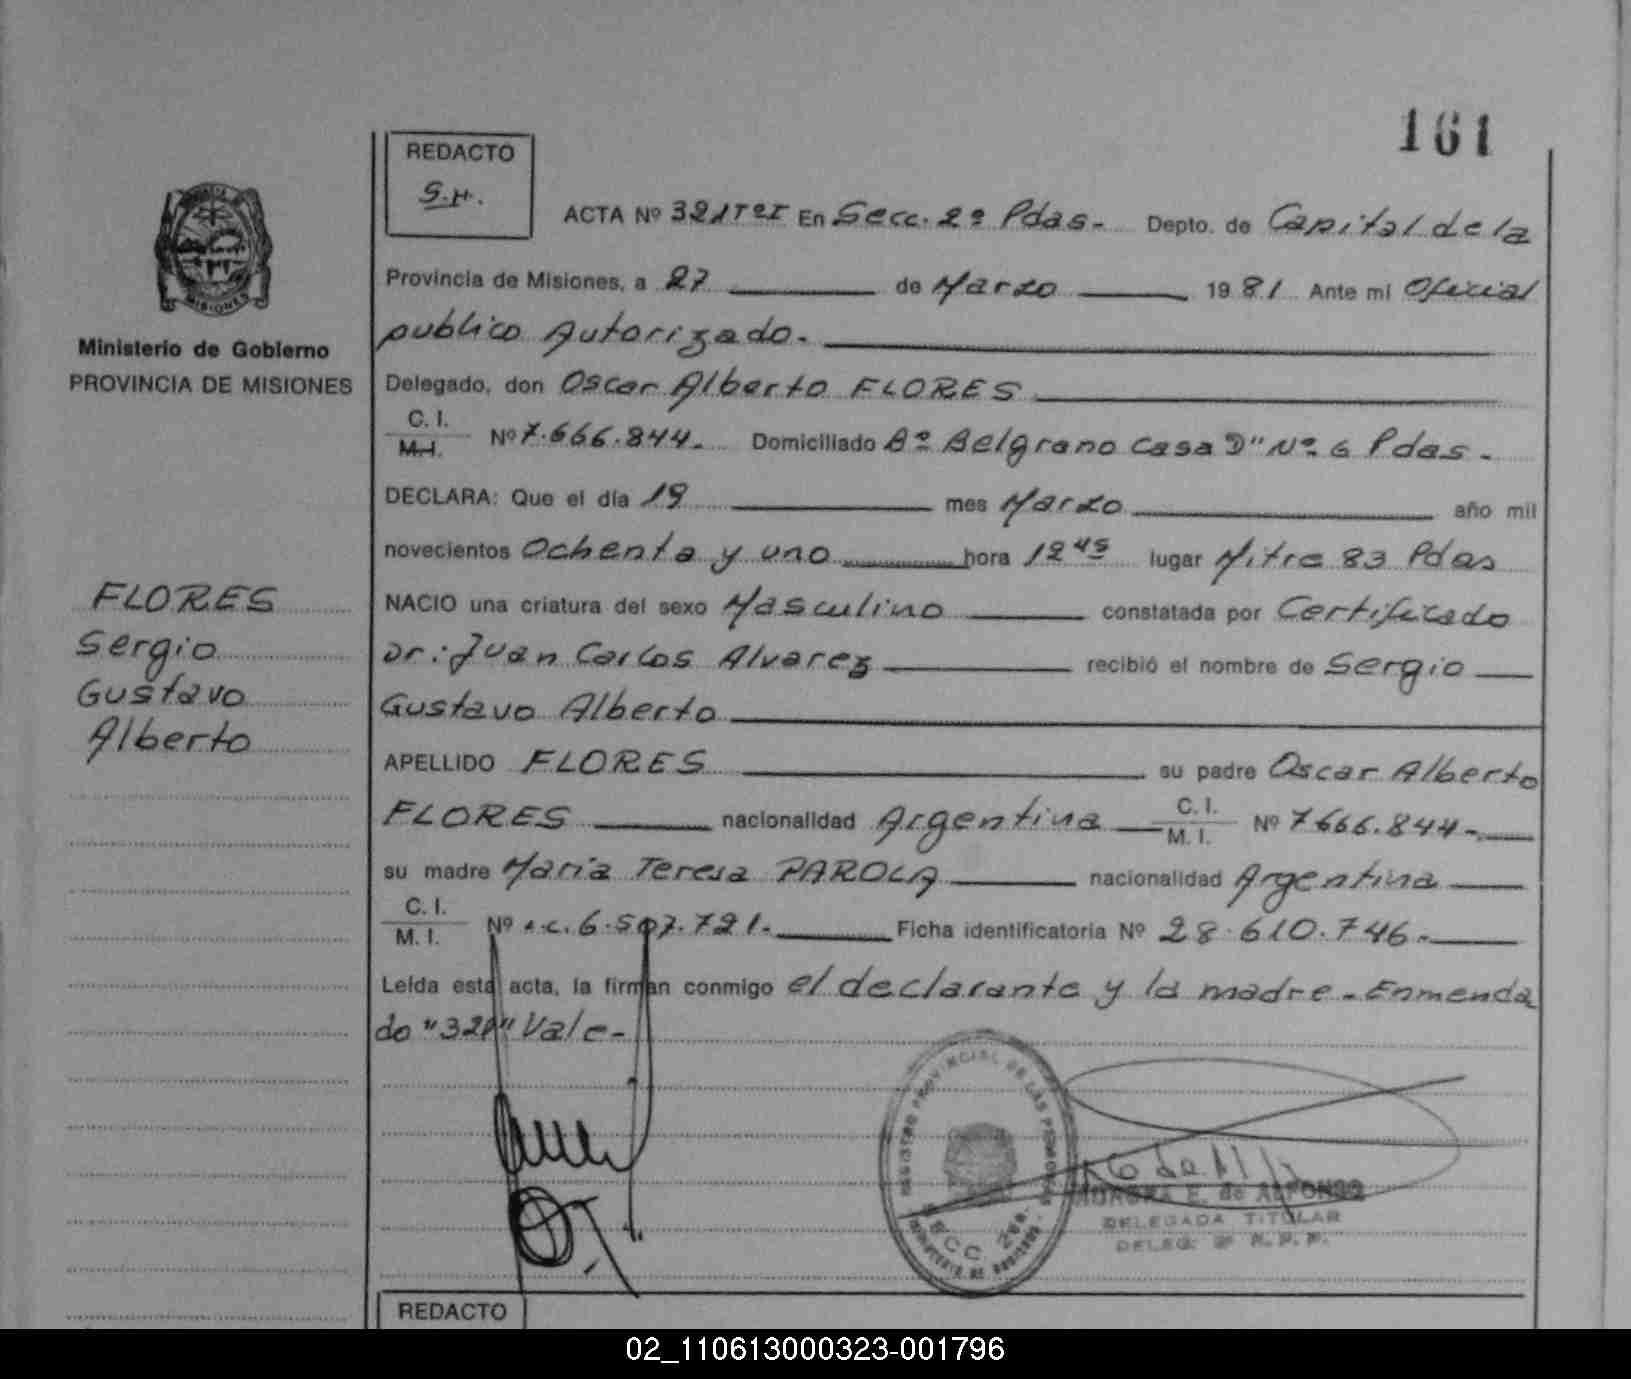 161
REDACTO
S.H.
ACTA Nº 321 Tº I En Secc. 2º Pdas.- Depto. de Capital de la
Provincia de Misiones, a 27 de Marzo 1981 Ante mi Oficial
publico Autorizado.
MISIONES
Ministerio de Gobierno
PROVINCIA DE MISIONES
Delegado, don Oscar Alberto FLORES
C. I.
M. I. Nº 7.666.844.- Domiciliado Bº Belgrano Casa D" Nº 6 Pdas.-
DECLARA: Que el día 19 mes Marzo año mil
novecientos Ochenta y uno hora 12 45 lugar Mitre 83 Pdas
FLORES
Sergio
Gustavo
Alberto
NACIO una criatura del sexo Masculino constatada por Certificado
Dr: Juan Carlos Alvarez recibió el nombre de Sergio
Gustavo Alberto
APELLIDO FLORES su padre Oscar Alberto
FLORES nacionalidad Argentina C. I.
M. I. Nº 7666.844-
su madre María Teresa PAROLA nacionalidad Argentina
C. I.
M. I. Nº L.C. 6.507.721.- Ficha identificatoria Nº 28.610.746.-
Leída esta acta, la firman conmigo el declarante y la madre - Enmenda
do "321" Vale-
REGISTRO PROVINCIAL DE LAS PERSONAS
SECC. 2da.
MINISTERIO DE GOBIERNO
E. de ALFONSO
DELEGADA TITULAR
DELEG. 2ª R. P. P.
REDACTO
02_110613000323-001796